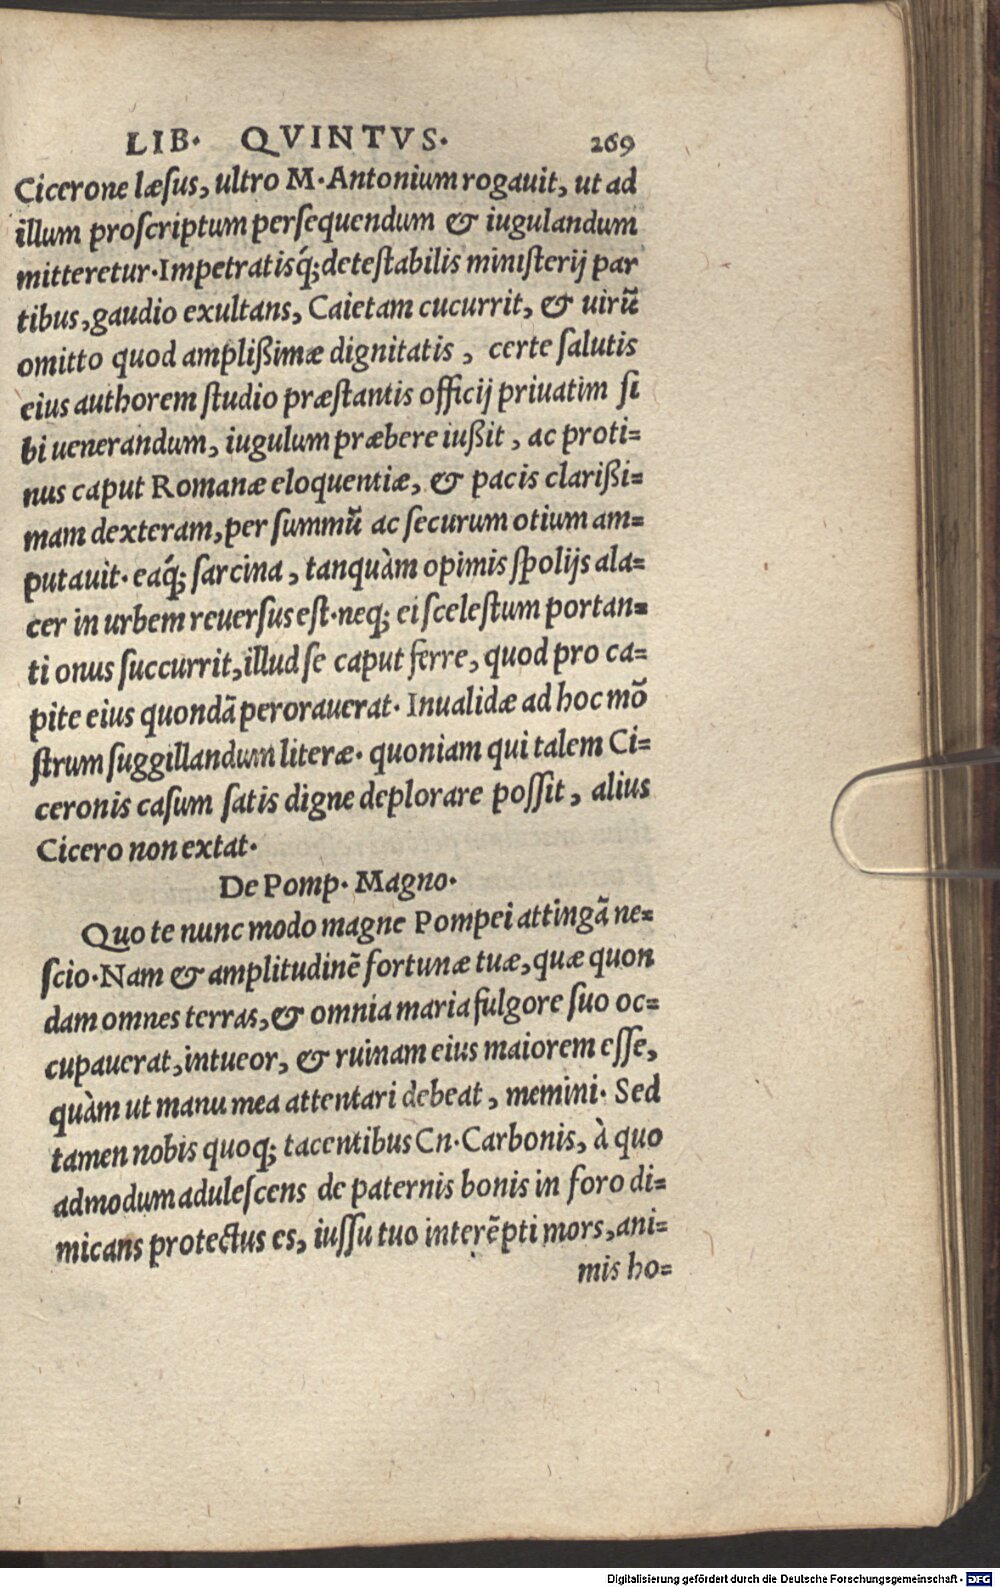 LIB. QVINTVS. 269
Cicerone læsus, ultro M. Antonium rogauit, ut ad
illum proscriptum persequendum & iugulandum
mitteretur. Impetratisq́; detestabilis ministerij par
tibus, gaudio exultans, Caietam cucurrit, & uirũ
omitto quod amplißimæ dignitatis, certe salutis
eius authorem studio præstantis officij priuatim si
bi uenerandum, iugulum præbere iußit, ac proti=
nus caput Romanæ eloquentiæ, & pacis clarißi=
mam dexteram, per summũ ac securum otium am=
putauit. eaq́; sarcina, tanquàm opimis spolijs ala=
cer in urbem reuersus est. neq; ei scelestum portan=
ti onus succurrit, illud se caput ferre, quod pro ca=
pite eius quondã perorauerat. Inualidæ ad hoc mõ
strum suggillandum literæ. quoniam qui talem Ci=
ceronis casum satis digne deplorare possit, alius
Cicero non extat.
De Pomp. Magno.
Quo te nunc modo magne Pompei attingã ne=
scio. Nam & amplitudinẽ fortunæ tuæ, quæ quon
dam omnes terras, & omnia maria fulgore suo oc=
cupauerat, intueor, & ruinam eius maiorem esse,
quàm ut manu mea attentari debeat, memini. Sed
tamen nobis quoq; tacentibus Cn. Carbonis, à quo
admodum adulescens de paternis bonis in foro di=
micans protectus es, iussu tuo interẽpti mors, ani=
mis ho=
Digitalisierung gefördert durch die Deutsche Forschungsgemeinschaft - DFG